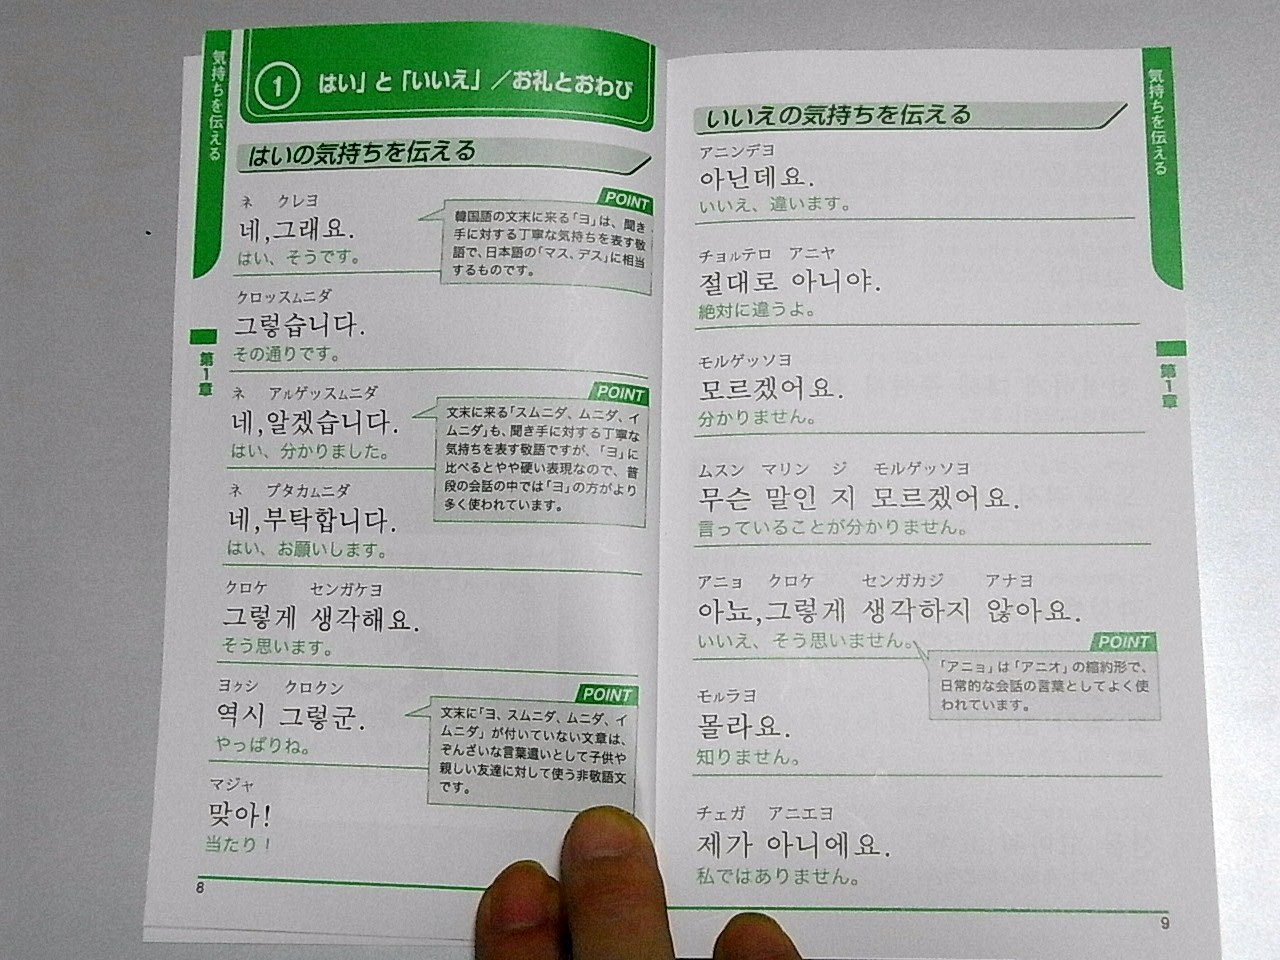 気持ちを伝える
① はい」と「いいえ」／お礼とおわび
はいの気持ちを伝える
ネ クレヨ
네,그래요.
はい、そうです。
POINT
韓国語の文末に来る「ヨ」は、聞き
手に対する丁寧な気持ちを表す敬
語で、日本語の「マス、デス」に相当
するものです。
クロッスムニダ
그렇습니다.
その通りです。
第1章
ネ アルゲッスムニダ
네,알겠습니다.
はい、分かりました。
POINT
文末に来る「スムニダ、ムニダ、イ
ムニダ」も、聞き手に対する丁寧な
気持ちを表す敬語ですが、「ヨ」に
比べるとやや硬い表現なので、普
段の会話の中では「ヨ」の方がより
多く使われています。
ネ プタカムニダ
네,부탁합니다.
はい、お願いします。
クロケ センガケヨ
그렇게 생각해요.
そう思います。
ヨゥシ クロクン
역시 그렇군.
やっぱりね。
POINT
文末に「ヨ、スムニダ、ムニダ、イ
ムニダ」が付いていない文章は、
ぞんざいな言葉遣いとして子供や
親しい友達に対して使う非敬語文
です。
マジャ
맞아!
当たり！
8
いいえの気持ちを伝える
気持ちを伝える
アニンデヨ
아닌데요.
いいえ、違います。
チョルテロ アニヤ
절대로 아니야.
絶対に違うよ。
モルゲッソヨ
모르겠어요.
分かりません。
第1章
ムスン マリン ジ モルゲッソヨ
무슨 말인 지 모르겠어요.
言っていることが分かりません。
アニョ クロケ センガカジ アナヨ
아뇨,그렇게 생각하지 않아요.
いいえ、そう思いません。
POINT
「アニョ」は「アニオ」の縮約形で、
日常的な会話の言葉としてよく使
われています。
モルラヨ
몰라요.
知りません。
チェガ アニエヨ
제가 아니에요.
私ではありません。
9